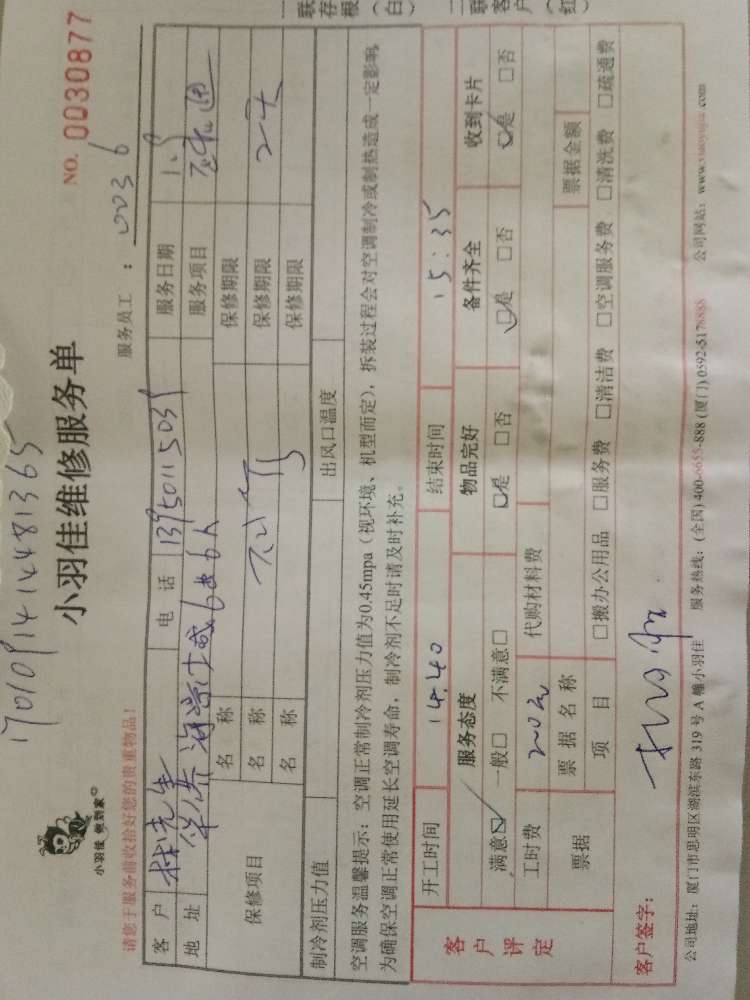 17010914144481365
NO. 0030877
小羽佳 做到家
小羽佳维修服务单
请您于服务前收拾好您的贵重物品!
服务员工: 0036
客户 林先生 电话 13950115039 服务日期 1.9
地址 服务项目
保修项目 名称 保修期限
名称 保修期限
名称 保修期限
制冷剂压力值 出风口温度
空调服务温馨提示:空调正常制冷剂压力值为0.45mpa(视环境、机型而定),拆装过程会对空调制冷或制热造成一定影响,
为确保空调正常使用延长空调寿命,制冷剂不足时请及时补充。
客户评定
开工时间 14.40 结束时间 15:35
服务态度 物品完好 备件齐全 收到卡片
满意☑ 一般□ 不满意□ □是 □否 □是 □否 □是 □否
工时费 200元 代购材料费
票据 票据名称 票据金额
项目 □搬办公用品 □服务费 □清洁费 □空调服务费 □清洗费 □疏通费
客户签字:
公司地址:厦门市思明区湖滨东路319号A幢小羽佳 服务热线:(全国)400-6655-888 (厦门)0592-5178888 公司网站:www.xiaoyujia.com